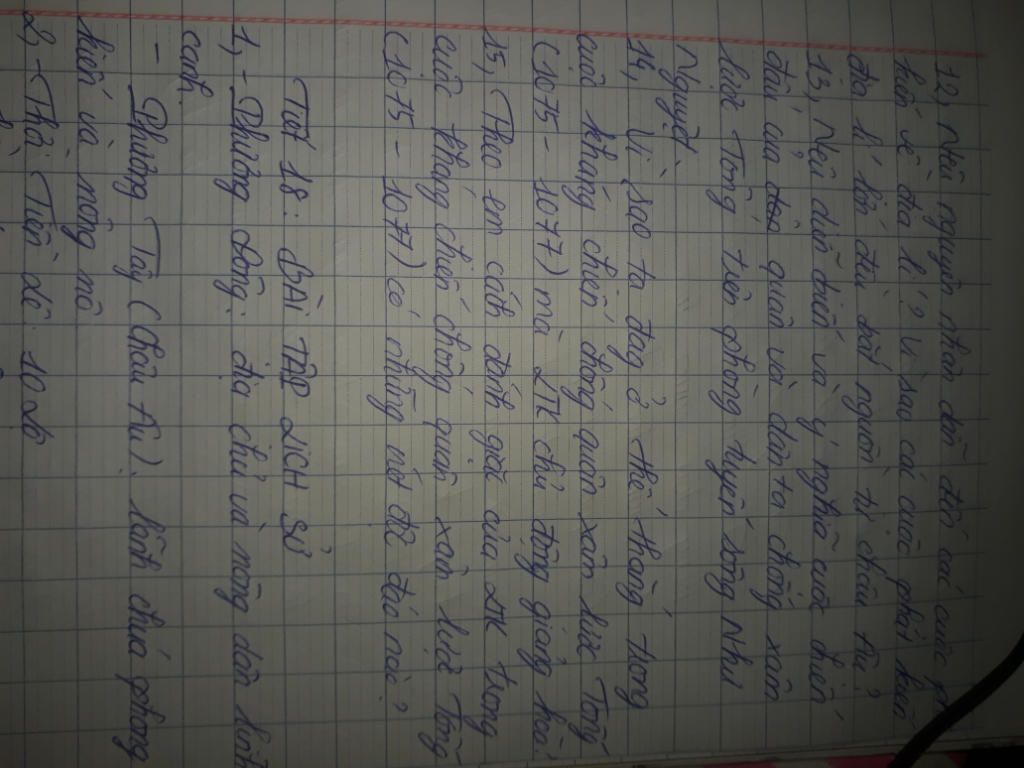 12, Nêu nguyên nhân dẫn đến các cuộc
kiến về địa lí? Vì sao các cuộc phát kiến
địa lí lớn đều bắt nguồn từ châu Âu?
13, Nêu diễn biến và ý nghĩa cuộc chiến
đấu của quân và dân ta chống xâm
lược Tống trên phòng tuyến sông Như
Nguyệt.
14, Vì sao ta đang ở thế thắng trong
cuộc kháng chiến chống quân xâm lược Tống
(1075 - 1077) mà LTK chủ động giảng hoà.
15, Theo em cách đánh giặc của LTK trong
cuộc kháng chiến chống quân xâm lược Tống
(1075 - 1077) có những nét độc đáo nào?
Tiết 18: BÀI TẬP LỊCH SỬ
1, - Phương Đông: địa chủ và nông dân lĩnh
canh.
- Phương Tây (châu Âu): lãnh chúa phong
kiến và nông nô
2, - Thời Tiền Lê: 10 lộ